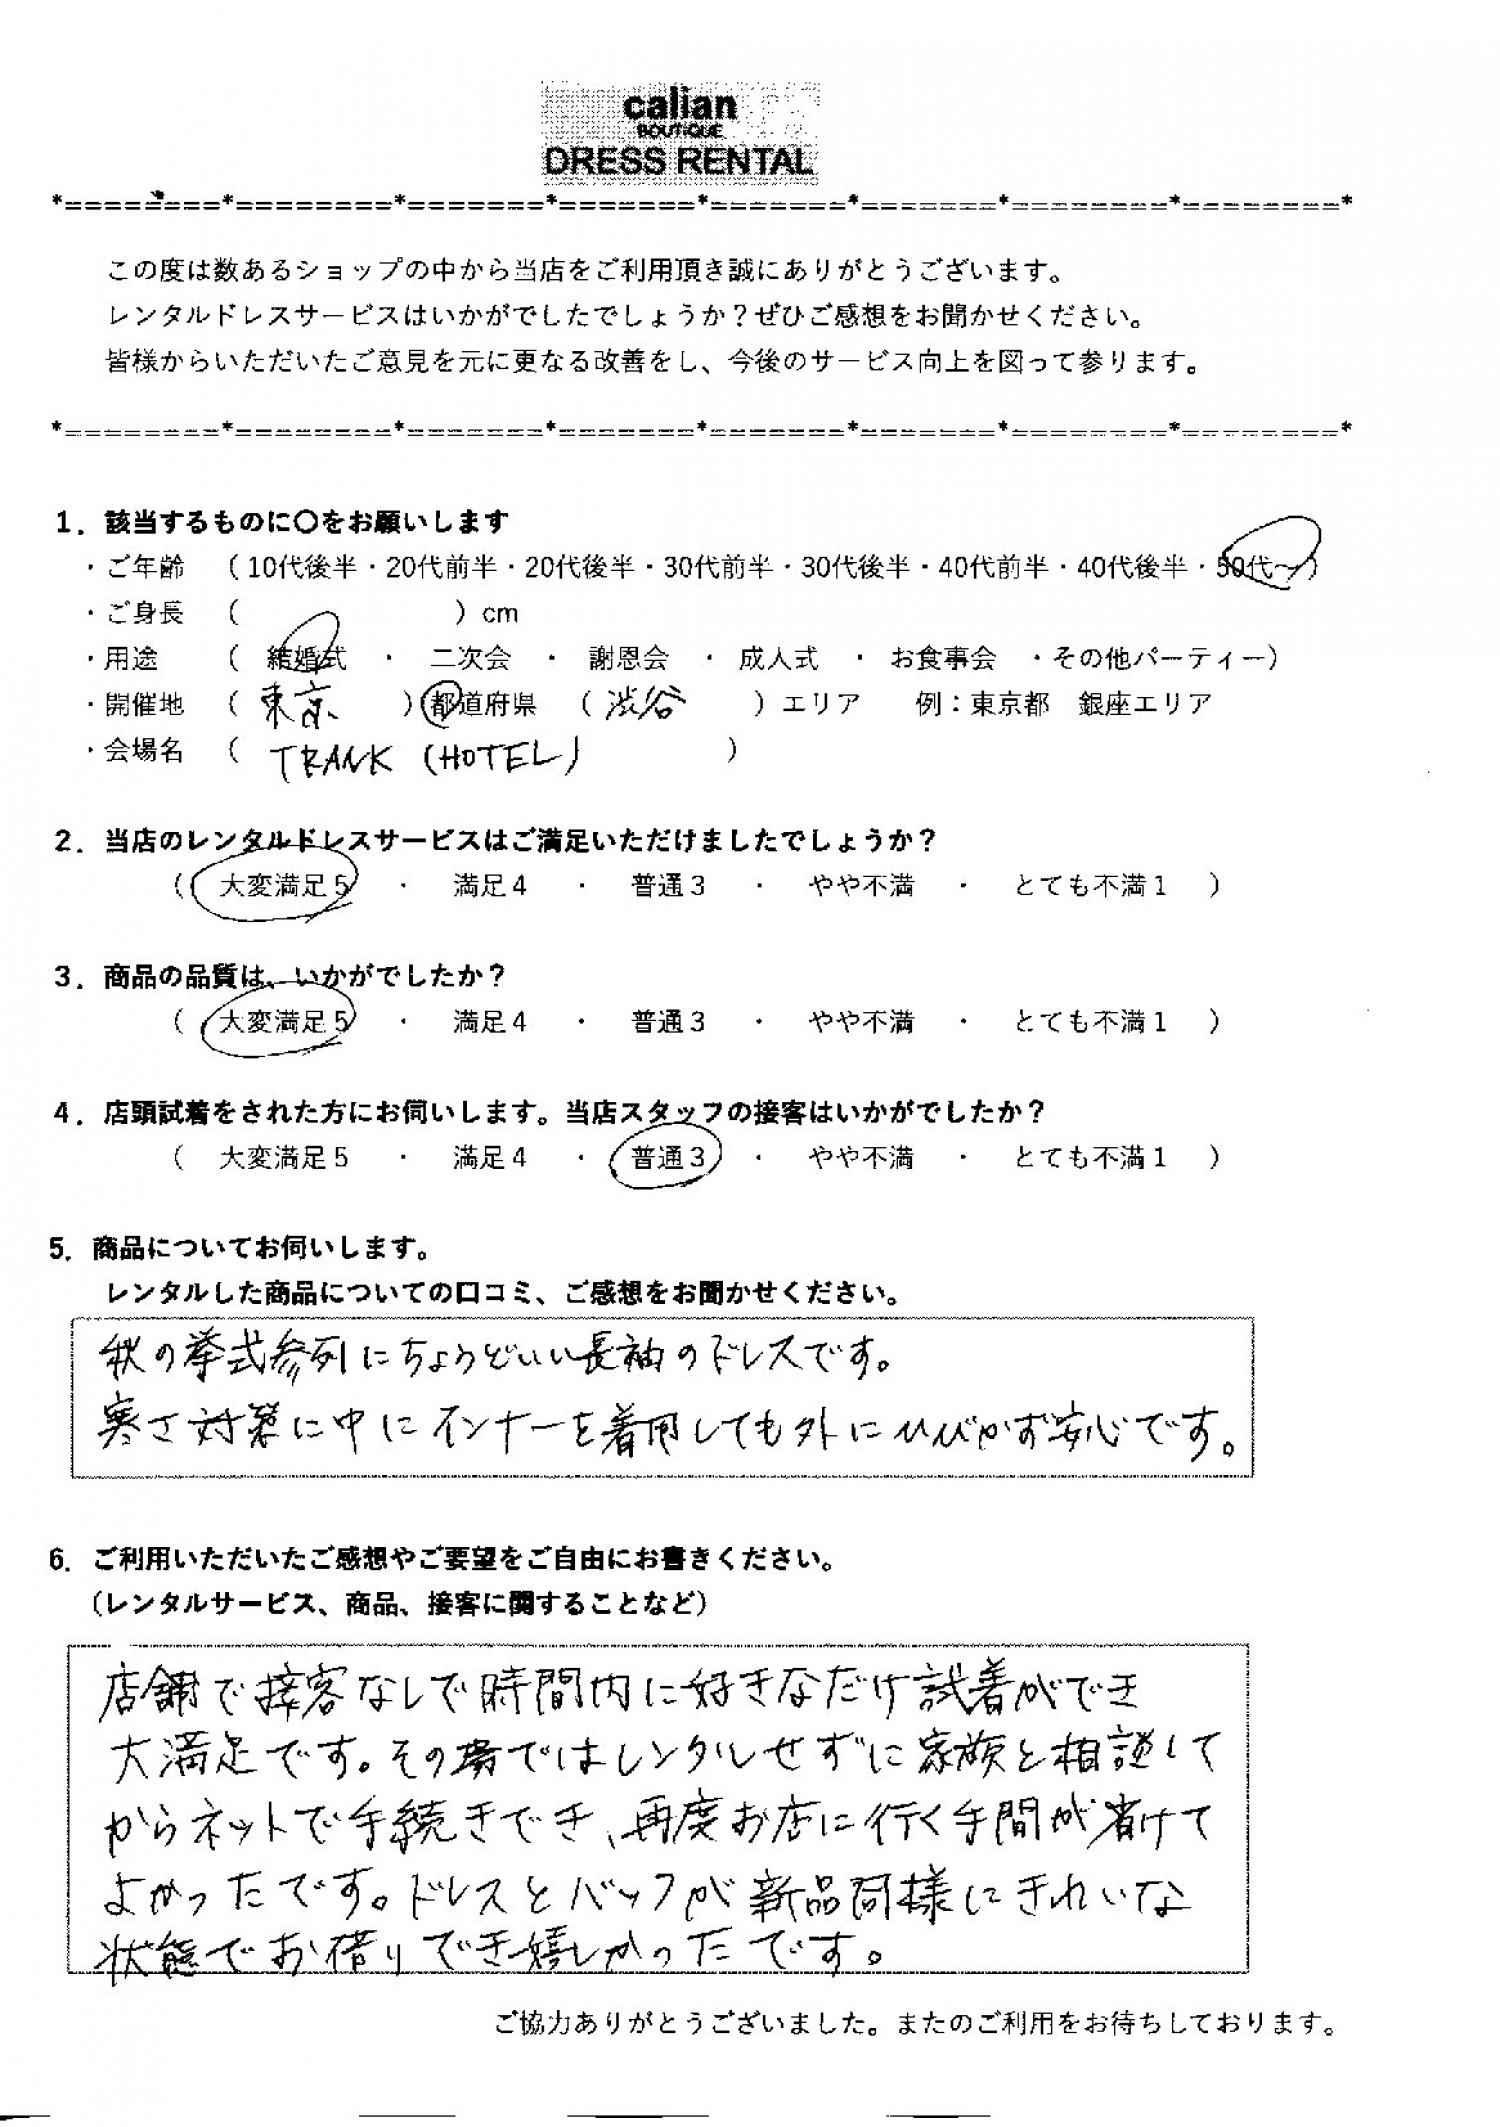 calian
BOUTIQUE
DRESS RENTAL
*========*========*=======*=======*=======*=======*========*========*
この度は数あるショップの中から当店をご利用頂き誠にありがとうございます。
レンタルドレスサービスはいかがでしたでしょうか？ぜひご感想をお聞かせください。
皆様からいただいたご意見を元に更なる改善をし、今後のサービス向上を図って参ります。
*========*========*=======*=======*=======*=======*========*========*
1．該当するものに〇をお願いします
・ご年齢　（10代後半・20代前半・20代後半・30代前半・30代後半・40代前半・40代後半・50代～）
・ご身長　（　　　　　　　　）cm
・用途　　（　結婚式　・　二次会　・　謝恩会　・　成人式　・　お食事会　・その他パーティー）
・開催地　（ 東京　　）都道府県　（ 渋谷　　）エリア　　例：東京都　銀座エリア
・会場名　（　TRANK (HOTEL)　　　　　）
2．当店のレンタルドレスサービスはご満足いただけましたでしょうか？
（　大変満足５　・　満足４　・　普通３　・　やや不満　・　とても不満１　）
3．商品の品質は、いかがでしたか？
（　大変満足５　・　満足４　・　普通３　・　やや不満　・　とても不満１　）
4．店頭試着をされた方にお伺いします。当店スタッフの接客はいかがでしたか？
（　大変満足５　・　満足４　・　普通３　・　やや不満　・　とても不満１　）
5．商品についてお伺いします。
レンタルした商品についての口コミ、ご感想をお聞かせください。
秋の挙式参列にちょうどいい長袖のドレスです。
寒さ対策に中にインナーを着用しても外にひびかず安心です。
6．ご利用いただいたご感想やご要望をご自由にお書きください。
（レンタルサービス、商品、接客に関することなど）
店舗で接客なしで時間内に好きなだけ試着ができ
大満足です。その場ではレンタルせずに家族と相談して
からネットで手続きでき、再度お店に行く手間が省けて
よかったです。ドレスとバッフが新品同様にきれいな
状態でお借りでき嬉しかったです。
ご協力ありがとうございました。またのご利用をお待ちしております。